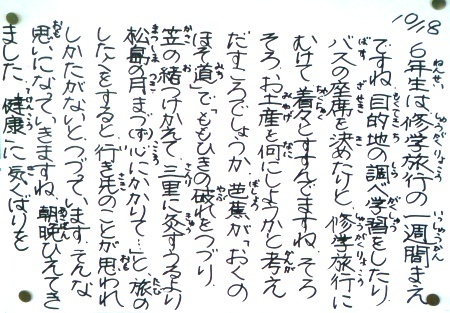 10/18
6年生は修学旅行の一週間まえ
ですね。目的地の調べ学習をしたり、
バスの座席を決めたりと、修学旅行に
むけて、着々とすすんでますね。そろ
そろ、お土産を何にしようかと考え
だすころでしょうか。芭蕉が「おくの
ほそ道」で「ももひきの破れをつづり、
笠の緒つけかえて、三里に灸すうるより、
松島の月まづ心にかかりて…」と、旅の
したくをすると、行き先のことが思われ
しかたがないとつづっています。そんな
思いになっていきますね。朝晩ひえてき
ました。健康に気くばりを